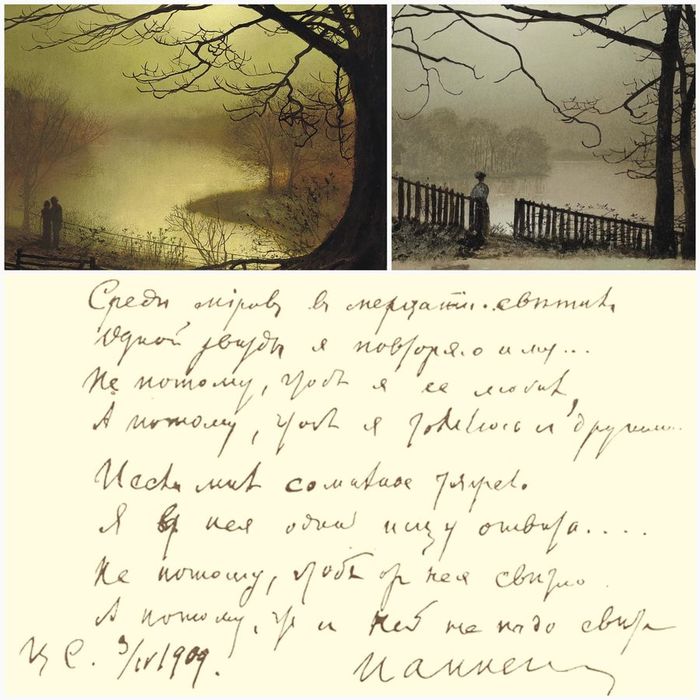 Среди міров в мерцаніи свѣтил
Одной звѣзды я повторяю имя...
Не потому, чтоб я ее любил,
А потому, что я томлюсь с другими.
И если мнѣ сомнѣнье тяжело
Я у нея одной ищу отвѣта....
Не потому, чтобы от нея свѣтло
А потому, что с ней не надо свѣта
Ц С. 3/IV 1909.